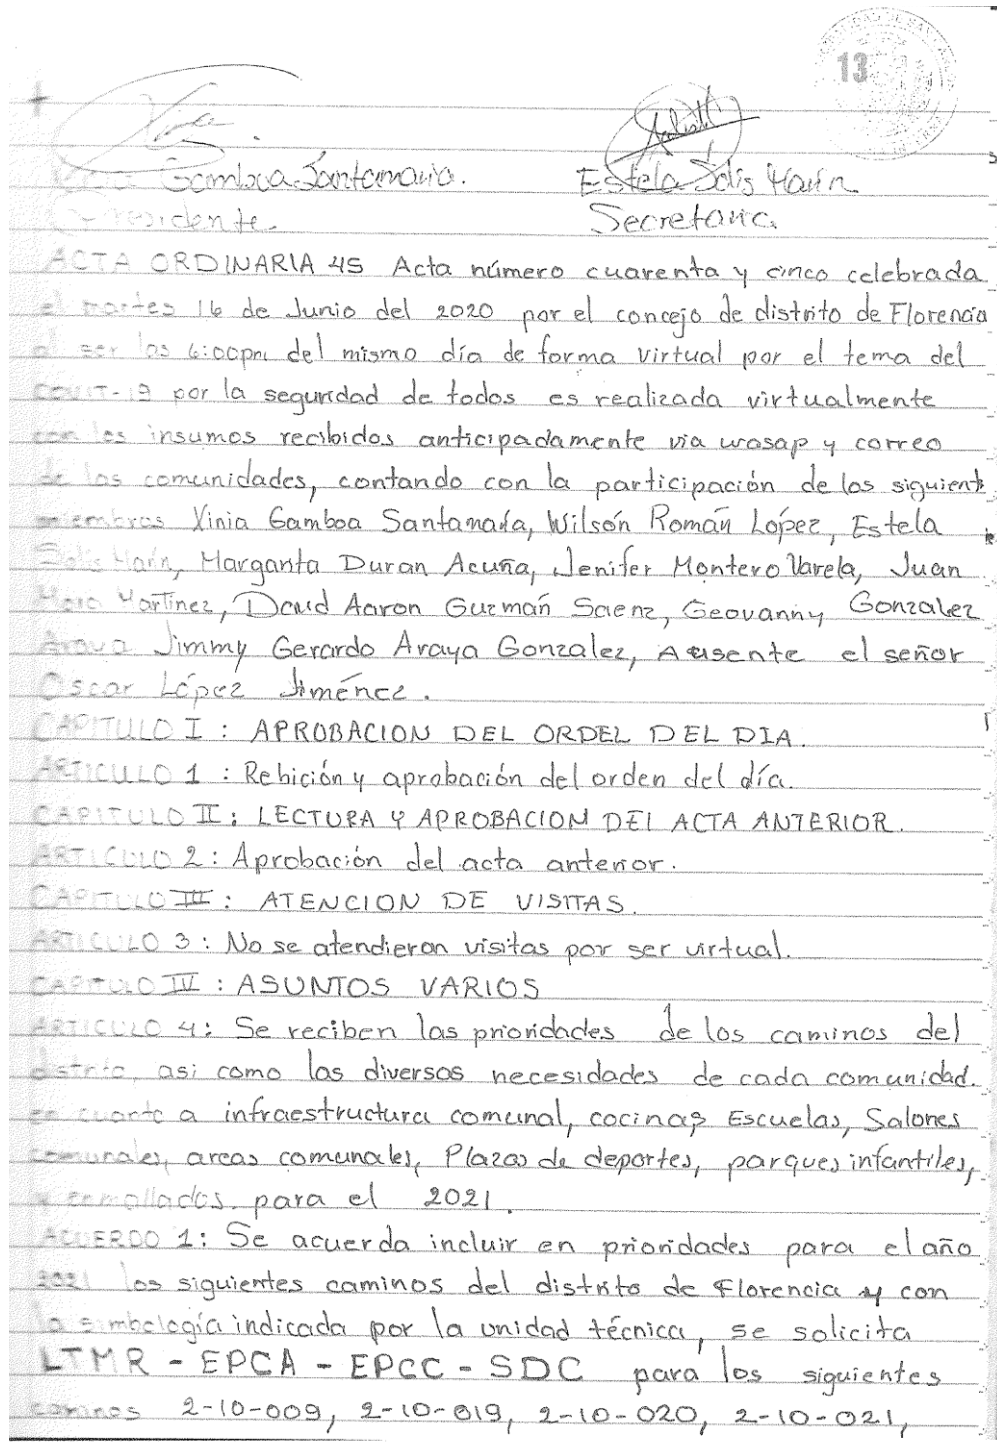 13
Gamboa Santamaria. Estela Solis Marin
Presidente. Secretaria.
ACTA ORDINARIA 45 Acta número cuarenta y cinco celebrada
el martes 16 de Junio del 2020 por el concejo de distrito de Florencia
al ser las 6:00pm del mismo día de forma virtual por el tema del
COVIT-19 por la seguridad de todos es realizada virtualmente
con los insumos recibidos anticipadamente via wasap y correo
de las comunidades, contando con la participación de los siguient
miembros Xinia Gamboa Santamaría, Wilsón Román López, Estela
Solis Marín, Margarita Duran Acuña, Jenifer Montero Varela, Juan
Mora Martínez, David Aaron Guzmán Saenz, Geovanny Gonzalez
Araya Jimmy Gerardo Araya Gonzalez, Ausente el señor
Oscar López Jiménez.
CAPITULO I : APROBACION DEL ORDEL DEL DIA.
ARTICULO 1 : Rebición y aprobación del orden del día.
CAPITULO II : LECTURA Y APROBACION DEL ACTA ANTERIOR.
ARTICULO 2 : Aprobación del acta anterior.
CAPITULO III : ATENCION DE VISITAS.
ARTICULO 3 : No se atendieron visitas por ser virtual.
CAPITULO IV : ASUNTOS VARIOS
ARTICULO 4: Se reciben las prioridades de los caminos del
distrito, asi como las diversas necesidades de cada comunidad.
en cuanto a infraestructura comunal, cocinas Escuelas, Salones
comunales, areas comunales, Plazas de deportes, parques infantiles,
y enmallados. para el 2021.
ACUERDO 1: Se acuerda incluir en prioridades para el año
2021 los siguientes caminos del distrito de Florencia y con
la simbología indicada por la unidad técnica, se solicita
LTMR - EPCA - EPCC - SDC para los siguientes
caminos 2-10-009, 2-10-019, 2-10-020, 2-10-021,